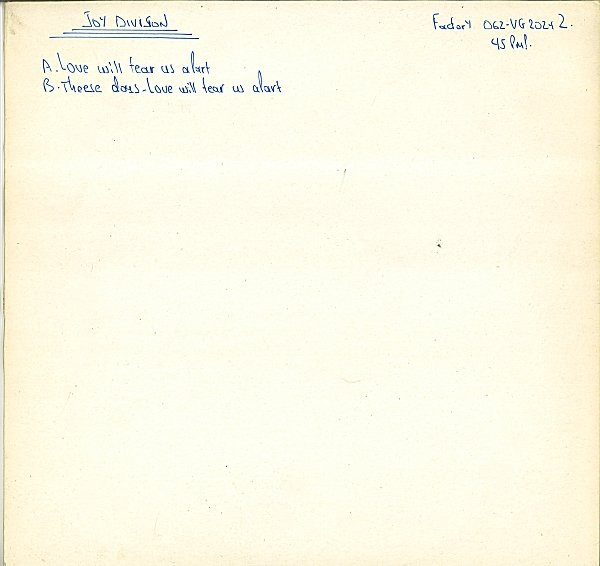 JOY DIVISON
Factory 062-VG 2024 2.
45 RM!.
A. Love will tear us apart
B. Theese days - Love will tear us apart